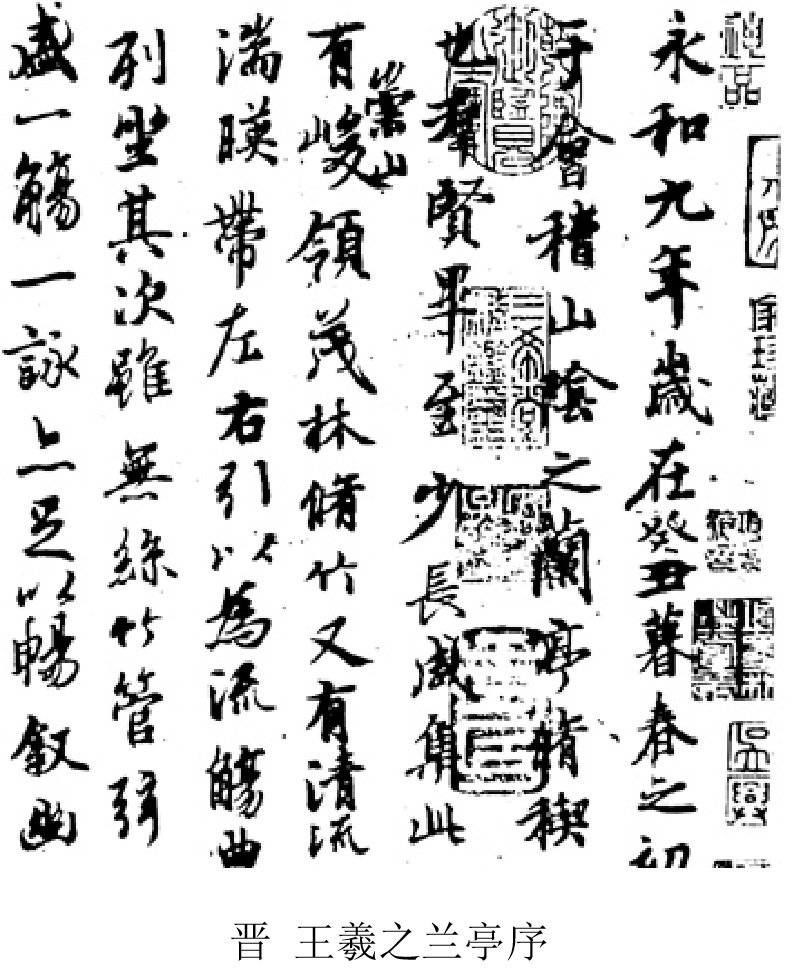 神品
永和九年歲在癸丑暮春之初
于會稽山陰之蘭亭脩稧
也羣賢畢至少長咸集此
有崇山峻領茂林脩竹又有清流
湍暎帶左右引以為流觴曲
列坐其次雖無絲竹管弦
盛一觴一詠亦足以暢敘幽
晋 王羲之兰亭序